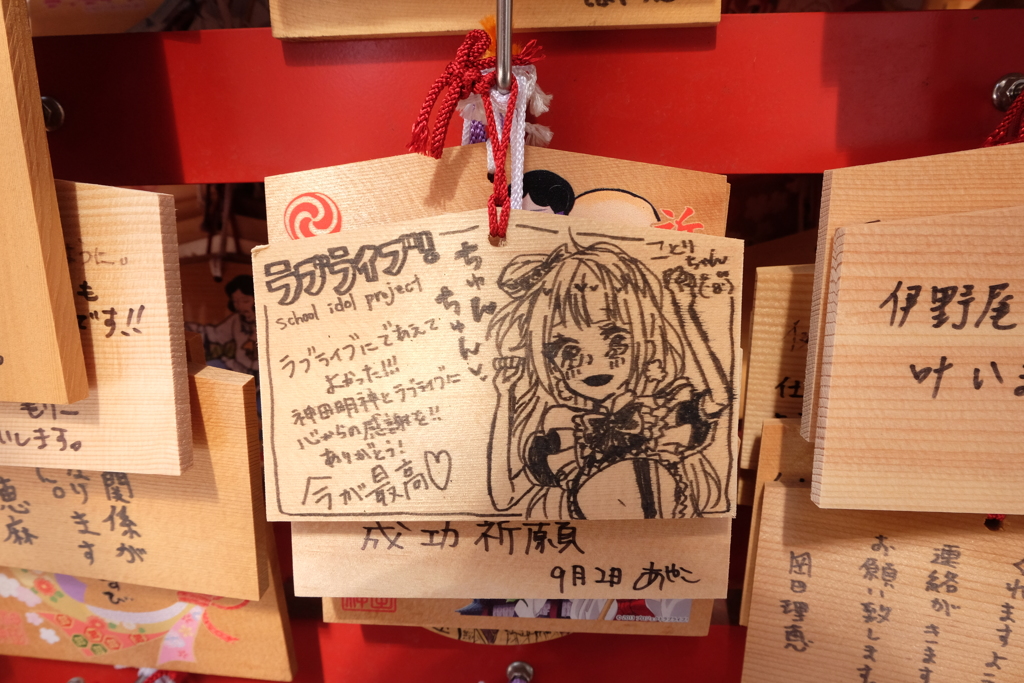 ラブライブ!!
school idol project
ラブライブにであえて
よかった!!!
神田明神とラブライブに
心からの感謝を!!
ありがとう!
今が最高♡
ちゅん
ちゅん
ことり
ちゃん
(・8・)
成功祈願
9月2日 あやこ
です!!
します。
関係が
なりますよ
恵麻
伊野尾
叶いま
くれますよ
連絡がきます
お願い致します
岡田理恵